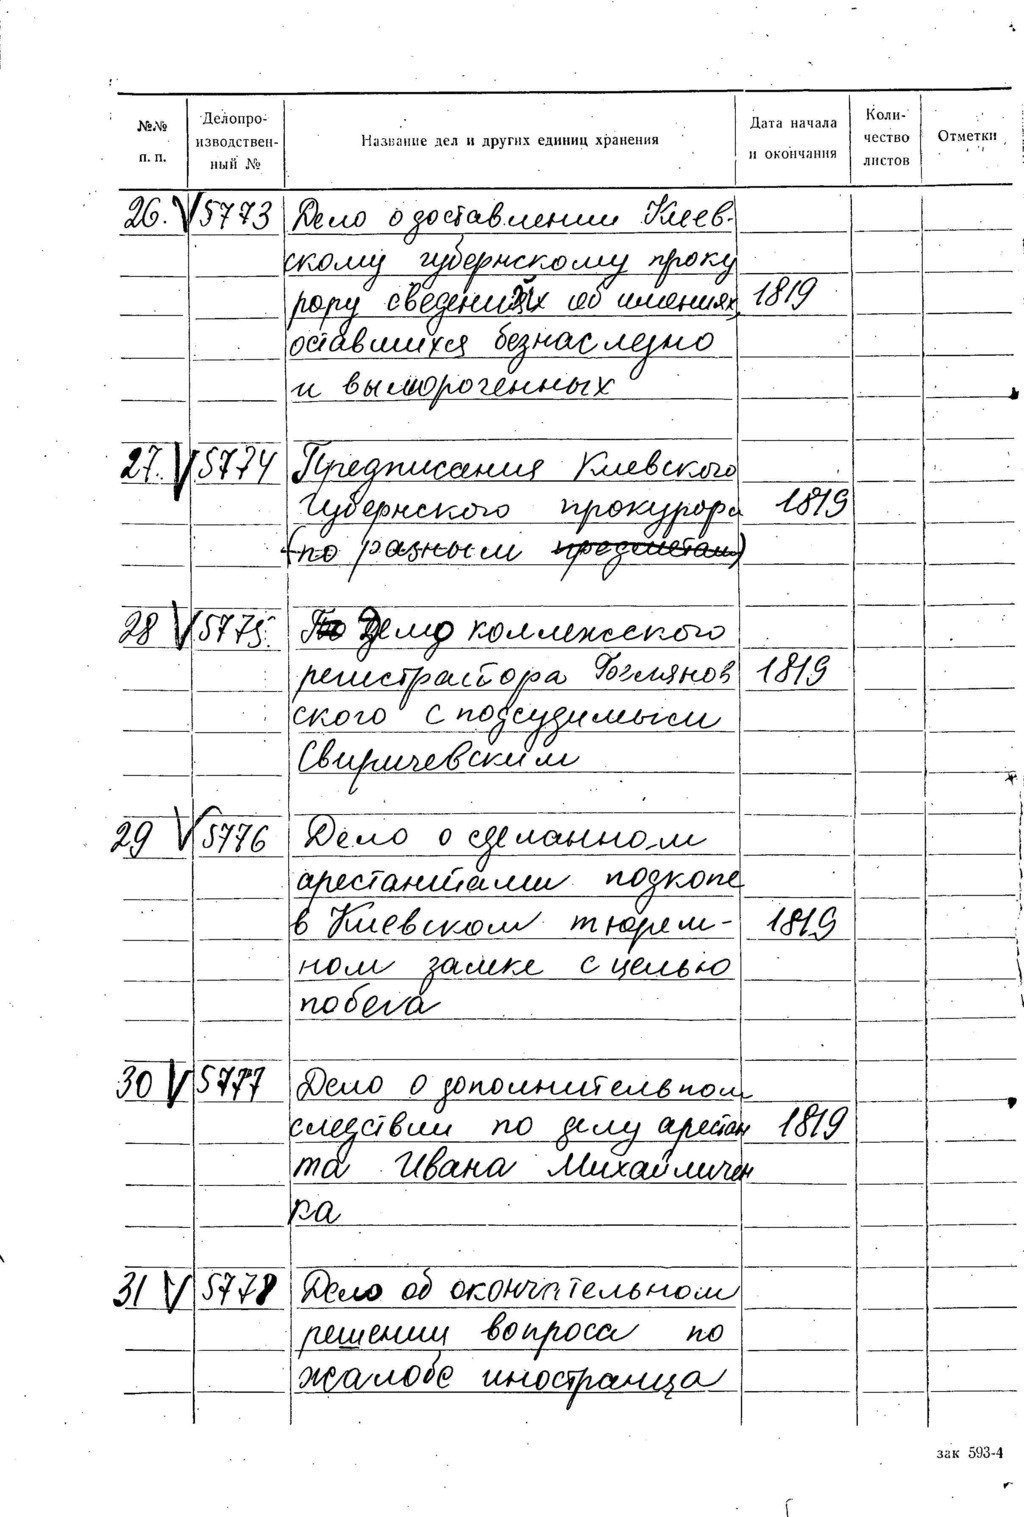 №№ п. п. Делопро-изводствен-ный № Название дел и других единиц хранения Дата начала и окончания Коли-чество листов Отметки
26. V 5773 Дело о доставлении Киев-
скому губернскому проку
рору сведений об имениях, 1819
оставшихся безнаследно
и вымороченных
27. V 5774 Предписания Киевского
губернского прокурора 1819
(по разным предметам)
28 V 5775. По Делу коллежского
регистратора 1819
ского с подсудимым
Свиричевским
29 V 5776 Дело о сделанном
арестантами подкопе
в Киевском тюрем- 1819
ном замке с целью
побега
30 V 5777 Дело о дополнительном
следствии по делу арестан 1819
та Ивана Михайличен
ка
31 V 5778 Дело об окончательном
решении вопроса по
жалобе иностранца
зак 593-4